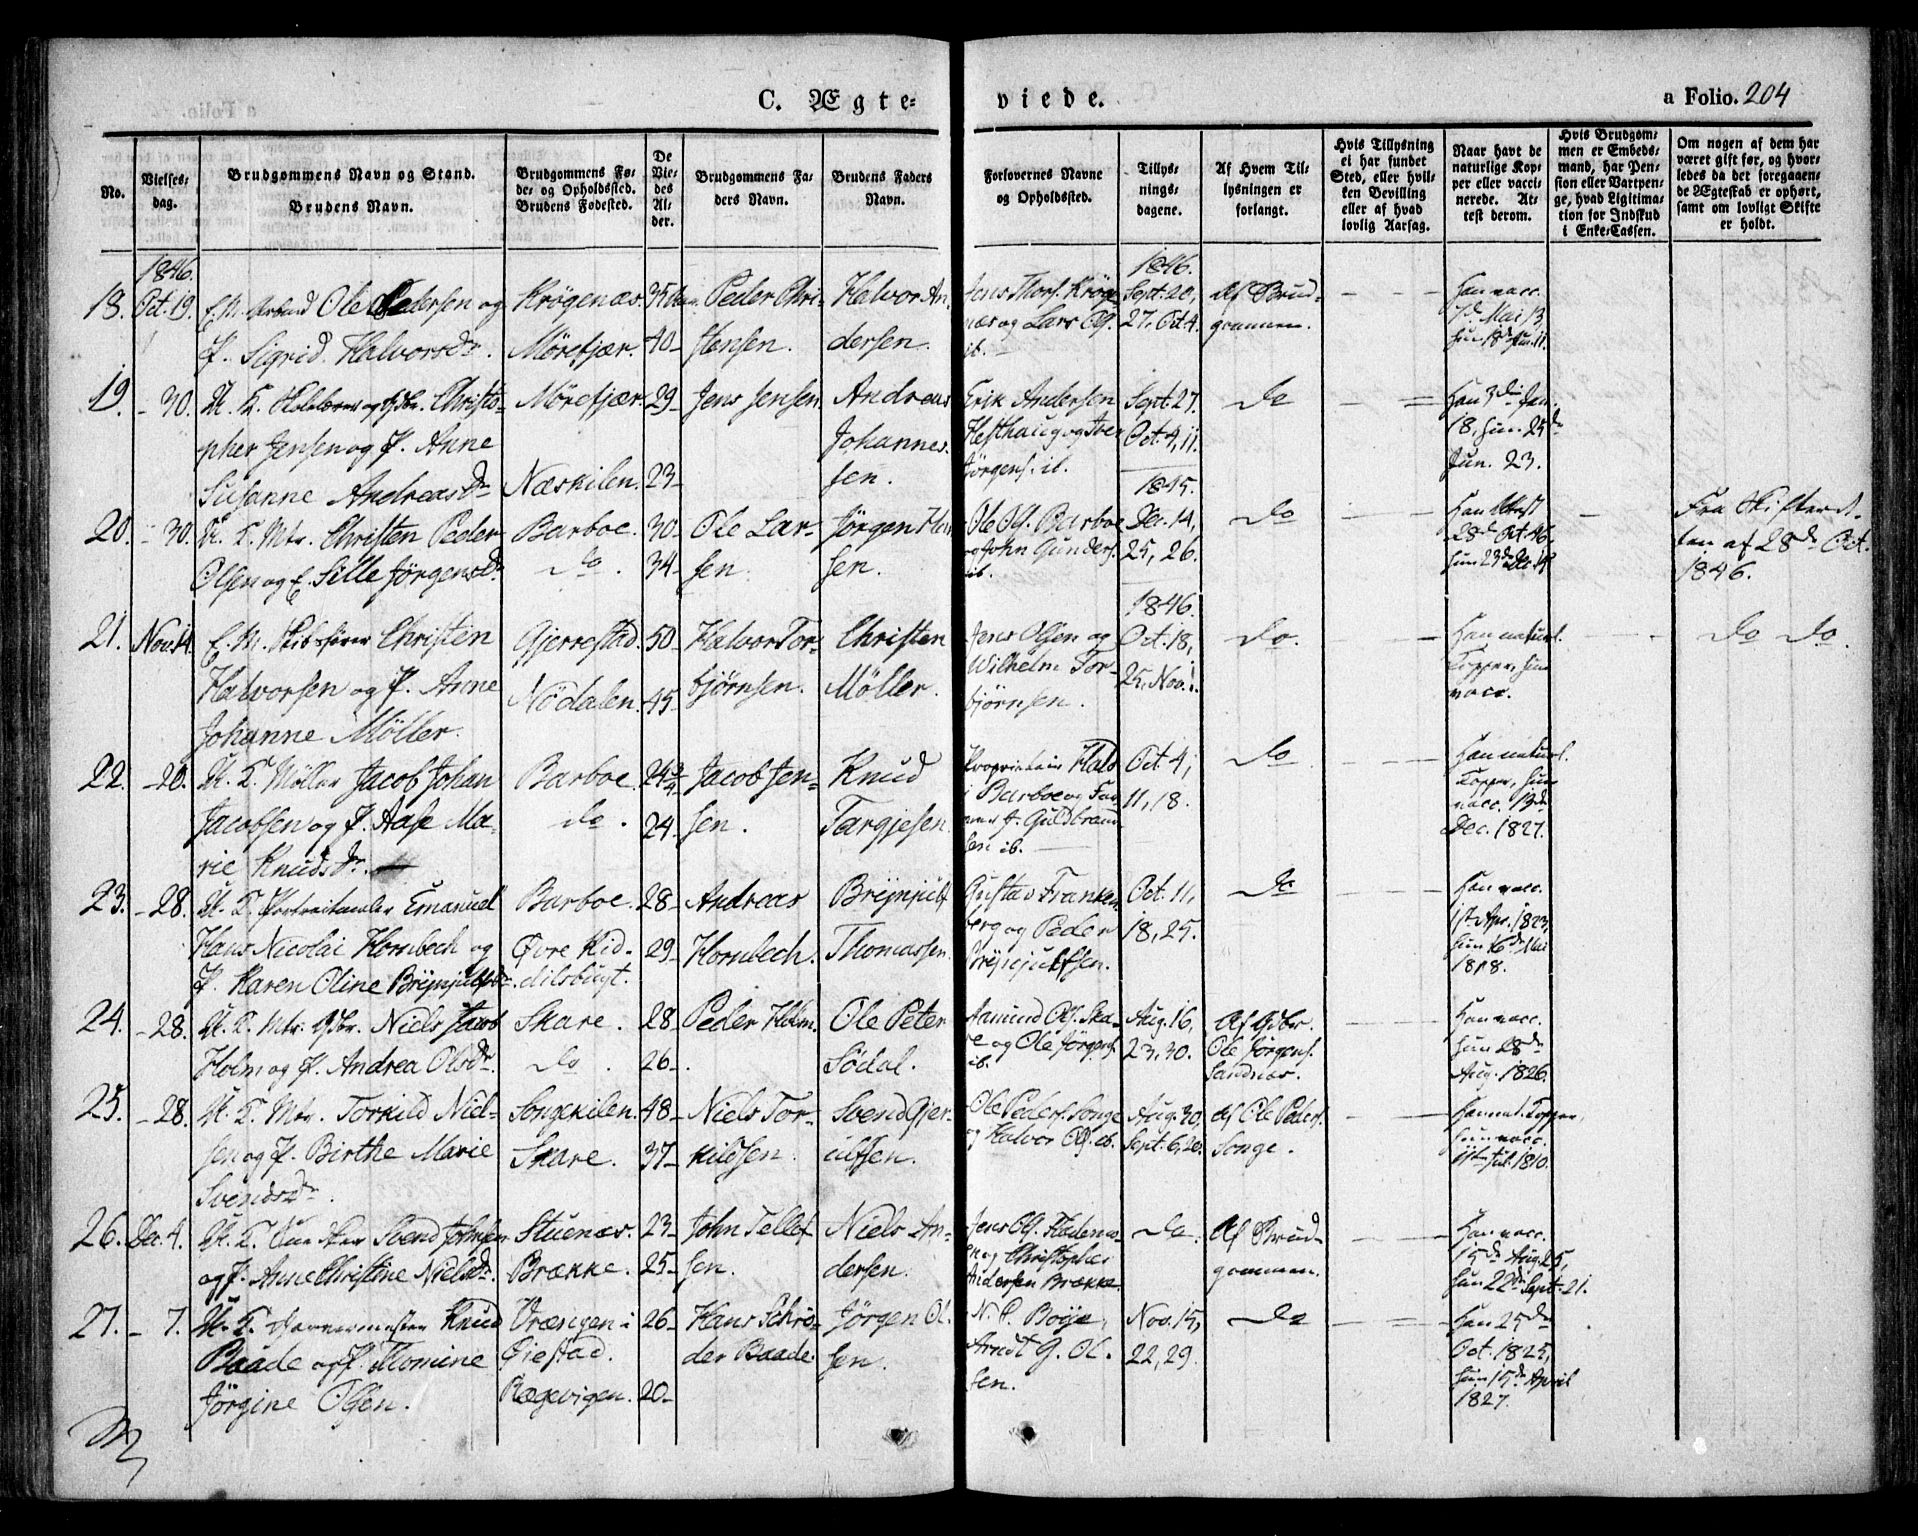 C. Ægte-
viede.
a Folio. 204
No.
Vielses-
dag.
Brudgommens Navn og Stand.
Brudens Navn.
Brudgommens Fø-
de- og Opholdssted.
Brudens Fødested.
De
Vie-
des
Al-
der.
Brudgommens Fa-
ders Navn.
Brudens Faders
Navn.
Forlovernes Navne
og Opholdssted.
Tillys-
nings-
dagene.
Af Hvem Til-
lysningen er
forlangt.
Hvis Tillysning
ei har fundet
Sted, eller hvil-
ken Bevilling
eller af hvad
lovlig Aarsag.
Naar havt de
naturlige Kop-
per eller vacci-
nerede. At-
test derom.
Hvis Brudgom-
men er Embeds-
mand, har Pen-
sion eller Vartpen-
ge, hvad Ligitima-
tion for Indskud
i Enke-Cassen.
Om nogen af dem har
været gift før, og hvor-
ledes da det foregaaen-
de Ægteskab er ophørt,
samt om lovligt Skifte
er holdt.
1846.
18. Oct. 19. E. M. Ole Pedersen og
P. Sigrid Halvorsdr.
Krögenæs.
Mörefjær.
35
40
Peder Chri-
stensen.
Halvor An-
dersen.
Jens Thors. Kröge-
næs og Lars Ols.
ib.
1846.
Sept. 20,
27. Oct 4.
Af Brud-
gommen.
Han vacc.
7d Mai 13
hun 18d Jun. 11.
19. - 30. U. K. og Gdbr. Christo-
pher Jensen og P. Anne
Susanne Andreasdr
Mörefjær.
Næskilen.
29
23
Jens Jensen
Andreas
Johannes-
sen.
Erik Andersen
Hesthaug og Iver
Jörgens. ib.
Sept. 27.
Oct. 4, 11.
Do
Han 3di Jan.
18, hun 25de
Jun. 23.
20. - 30. U. K. Mtr. Christen Peder
Olsen og E. Sille Jörgensdr.
Barboe.
Do.
30
34
Ole Lar-
sen.
Jörgen Han-
sen.
Ole Ols. Barboe
og John Gunders.
ib.
1845.
Dec. 14,
25, 26.
Do
Han Attest
28d Oct. 46.
hun 23d Dec. 19.
Fra Skifteret-
ten af 28de Oct.
1846.
21. Nov. 14. E. M. Skibsförer Christen
Halvorsen og P. Anne
Johanne Möller.
Gjerrestad.
Nödalen.
50
45
Halvor Tor-
björnsen.
Christen
Möller.
Jens Olsen og
Wilhelm Tor-
björnsen.
1846.
Oct. 18,
25, Nov. 1.
Do.
Han naturl.
Kopper, hun
vacc.
Do Do.
22. - 20. U. K. Möller Jacob Johan
Jacobsen og P. Aase Ma-
rie Knudsdr.
Barboe.
Do.
24 3/4
24
Jacob Jen-
sen.
Knud
Targjesen.
Proprietair Hald
i Barboe og
Guldbrand-
sen ib.
Oct. 4,
11, 18.
Do
Han naturl.
Kopper, hun
vacc. 13d
Dec. 1827.
23. - 28. U. K. Portraitmaler Emanuel
Hans Nicolai Hornbech og
P. Karen Oline Brynjulfsdr.
Barboe.
Øvre Kid-
dilsbugt.
28
29
Andreas
Hornbech.
Brynjulf
Thomassen.
Gustav Franken-
berg og Peder
Brynjulfsen.
Oct. 11,
18, 25.
Do
Han vacc.
1st Apr. 1823,
hun 16d Mai
1818.
24. - 28. U. K. Mtr. Gdbr. Niels Jacob
Holm og P. Andrea Olsdr.
Skare.
Do.
28
26
Peder Holm.
Ole Peter
Södal.
Aamund Ols. Ska-
re og Ole Jörgens.
ib.
Aug. 16,
23, 30.
Af Gdbr.
Ole Jörgens.
Sandnæs.
Han vacc.
hun 28d
Aug. 1826.
25. - 28. U. K. Mtr. Torkild Niel-
sen og P. Birthe Marie
Svendsdr.
Songekilen.
Skare.
48
37
Niels Tor-
kildsen.
Svend Gjer-
ulfsen.
Ole Peders. Songe
og Halvor Ols. ib.
Aug. 30,
Sept. 6, 20.
Af Ole Peders.
Songe.
Han nat. Kopper,
hun vacc.
11te Jul. 1810.
26. Dec. 4. U. K. Svend Johnsen
og P. Anne Christine Nielsdr.
Stuenæs.
Brække.
23
25
John Tellef-
sen.
Niels An-
dersen.
Jens Ols. Flødenæs
og Christopher
Andersen Brække.
Do.
Af Brud-
gommen.
Han vacc.
15de Aug. 25,
hun 22d Sept. 21.
27. - 7. U. K. Knud
Baade og P. Thomine
Jörgine Olsen.
Vrængen i
Öiestad.
Rægevigen.
26
20
Hans Schrö-
der Baade.
Jörgen Ol-
sen.
N. P. Boye,
Arndt G. Ol-
sen.
Nov. 15,
22, 29.
Do
Han 25de
Oct. 1825,
hun 15de April
1827.